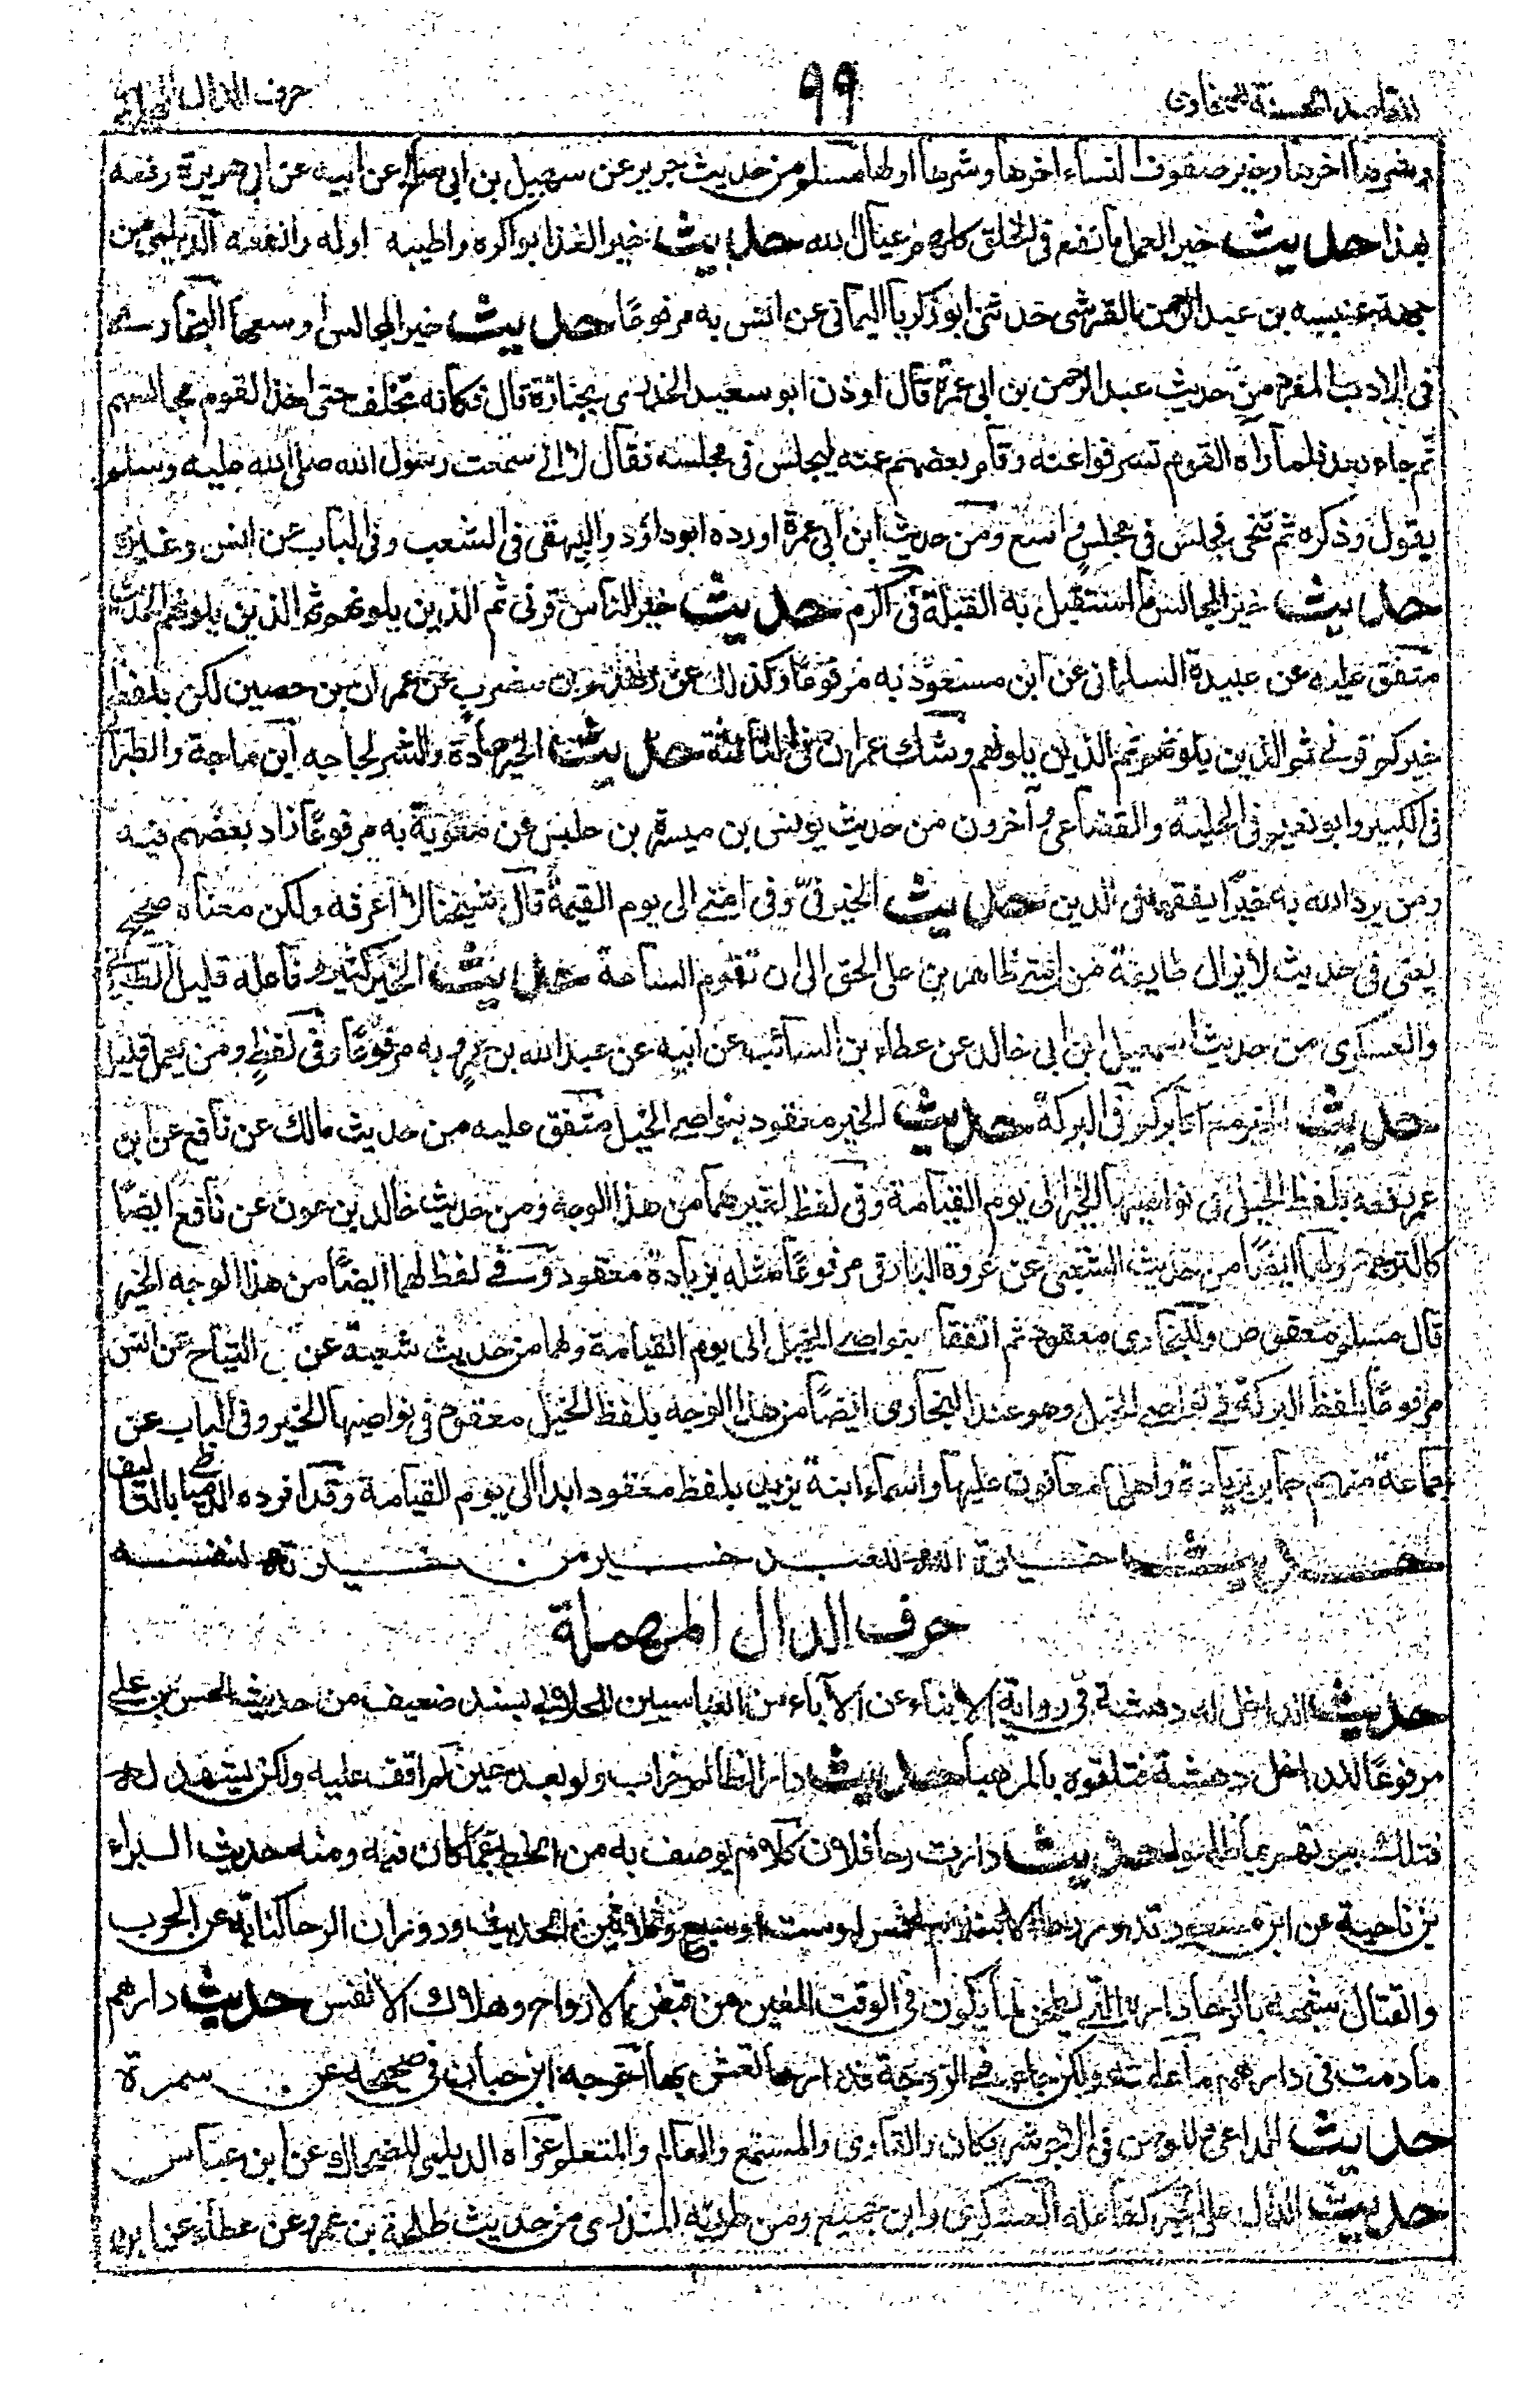 المقاصد الحسنة للسخاوى ٩٩ حرف الدال المهملة
وشرها اخرها وخير صفوف النساء اخرها وشرها اولها مسلم من حديث جرير عن سهيل بن ابى صالح عن ابيه عن ابى هريرة رفعه
بهذا حديث خير العمل ما نفع فى الخلق كلهم عيال الله حديث خير الغذا بواكره واطيبه اوله وانفعه الديلمى من
جهة عنبسه بن عبد الرحمن القرشى حدثنى ابو زكريا اليمانى عن انس به مرفوعا حديث خير المجالس اوسعها البخارى
فى الادب المفرد من حديث عبد الرحمن بن ابى عمرة قال اوذن ابو سعيد الخدرى بجنازة قال فكانه تخلف حتى اخذ القوم مجالسهم
ثم جاء بعد فلما رآه القوم تسرفوا عنه وقام بعضهم عنه ليجلس فى مجلسه فقال لا انى سمعت رسول الله صلى الله عليه وسلم
يقول وذكره ثم تنحى فجلس فى مجلس واسع ومن حديث ابن ابى عمرة اورده ابو داؤد والبيهقى فى الشعب وفى الباب عن انس وغيره
حديث خير المجالس ما استقبل به القبلة فى اكرم حديث خير الناس قرنى ثم الذين يلونهم ثم الذين يلونهم الحديث
متفق عليه عن عبيدة السلمانى عن ابن مسعود به مرفوعا وكذلك عن زهدم بن مضرب عن عمران بن حصين لكن بلفظ
خيركم قرنى ثم الذين يلونهم ثم الذين يلونهم وشك عمران فى الثالثة حديث الخير عادة والشر لجاجه ابن ماجة والطبرا
فى الكبير وابو نعيم فى الحلية والقضاعى وآخرون من حديث يونس بن ميسرة بن حلبس عن معوية به مرفوعا زاد بعضهم فيه
ومن يرد الله به خيرا يفقهه فى الدين حديث الخير فىّ وفى امتى الى يوم القيمة قال شيخنا لا اعرفه ولكن معناه صحيح
يعنى فى حديث لا يزال طايفة من امتى ظاهرين على الحق الى ان تقوم الساعة حديث الخير كثير وفاعله قليل الطبرانى
والعسكرى من حديث اسمعيل ابن ابى خالد عن عطاء بن السائب عن ابيه عن عبد الله بن عمرو به مرفوعا وفى لفظ ومن يعمله قليل
حديث الخير مع اكابركم فى البركة حديث الخير معقود بنواصى الخيل متفق عليه من حديث مالك عن نافع عن ابن
عمر رفعه بلفظ الخيل فى نواصيها الخير الى يوم القيامة وفى لفظ لغيرهما من هذا الوجه ومن حديث خالد بن عون عن نافع ايضا
كالترجمة ولهما ايضا من حديث الشعبى عن عروة البارقى مرفوعا مثله بزيادة معقود وفى لفظ لهما ايضا من هذا الوجه الخير
قال مسلم معقوص وللبخارى معقود ثم اتفقا بنواصى الخيل الى يوم القيامة ولهما من حديث شعبة عن ابى التياح عن انس
مرفوعا بلفظ البركة فى نواصى الخيل وهو عند البخارى ايضا من هذا الوجه بلفظ الخيل معقود فى نواصيها الخير وفى الباب عن
جماعة منهم جابر بزيادة واهلها معانون عليها واسماء ابنة يزيد بلفظ معقود ابدا الى يوم القيامة وقد افرده الدمياطى بالتاليف
حديث خيرة الله للعبد خير من خيرته لنفسه
حرف الدال المهملة
حديث الداخل له دهشة فى رواية الابناء عن الآباء من العباسيين للجلابى بسند ضعيف من حديث الحسن بن على
مرفوعا للداخل دهشة فتلقوه بالمرحبا حديث دار الظالم خراب ولو بعد حين لم اقف عليه ولكن يشهد له
فتلك بيوتهم خاوية بما ظلموا حديث دارت رحا فلان كلام يوصف به من الحط عما كان فيه ومنه حديث البراء
بن ناجية عن ابن مسعود تدور رحا الاسلام لخمس او ست او سبع وثلاثين الحديث ودوران الرحا كناية عن الحرب
والقتال شبهه بالرحا دارة التى يطحن لما يكون فى الوقت المعين من قبض الارواح وهلاك الانفس حديث دارهم
ما دمت فى دارهم ما علمته ولكن جاء فى الزوجة فدارها تعش بها اخرجه ابن حبان فى صحيحه عن سمرة
حديث الداعى والمؤمن فى الاجر شريكان والقارى والمستمع والعالم والمتعلم عزاه الديلمى للضحاك عن ابن عباس
حديث الدال على الخير كفاعله العسكرى وابن جميع ومن طريقه المنذرى من حديث طلحة بن عمرو عن عطاء عن ابن